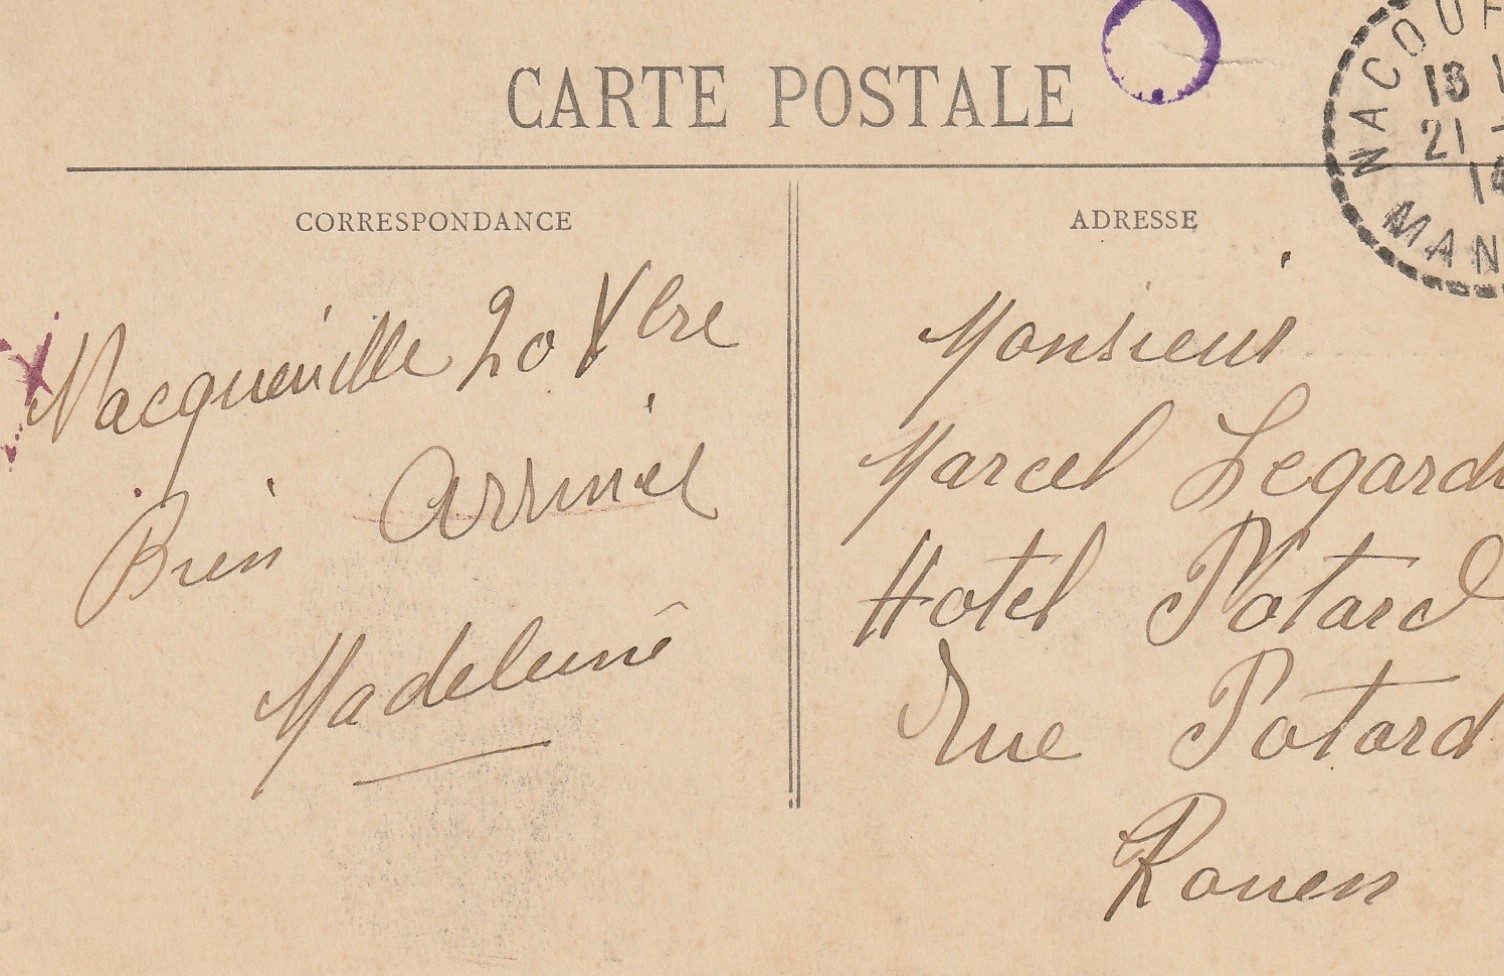 CARTE POSTALE
NACQU
13
21 -
MAN
CORRESPONDANCE
Nacqueville 20 Xbre
Bien Arrivés
Madeleine
ADRESSE
Monsieur
Marcel Legard
Hotel Potard
Rue Potard
Rouen